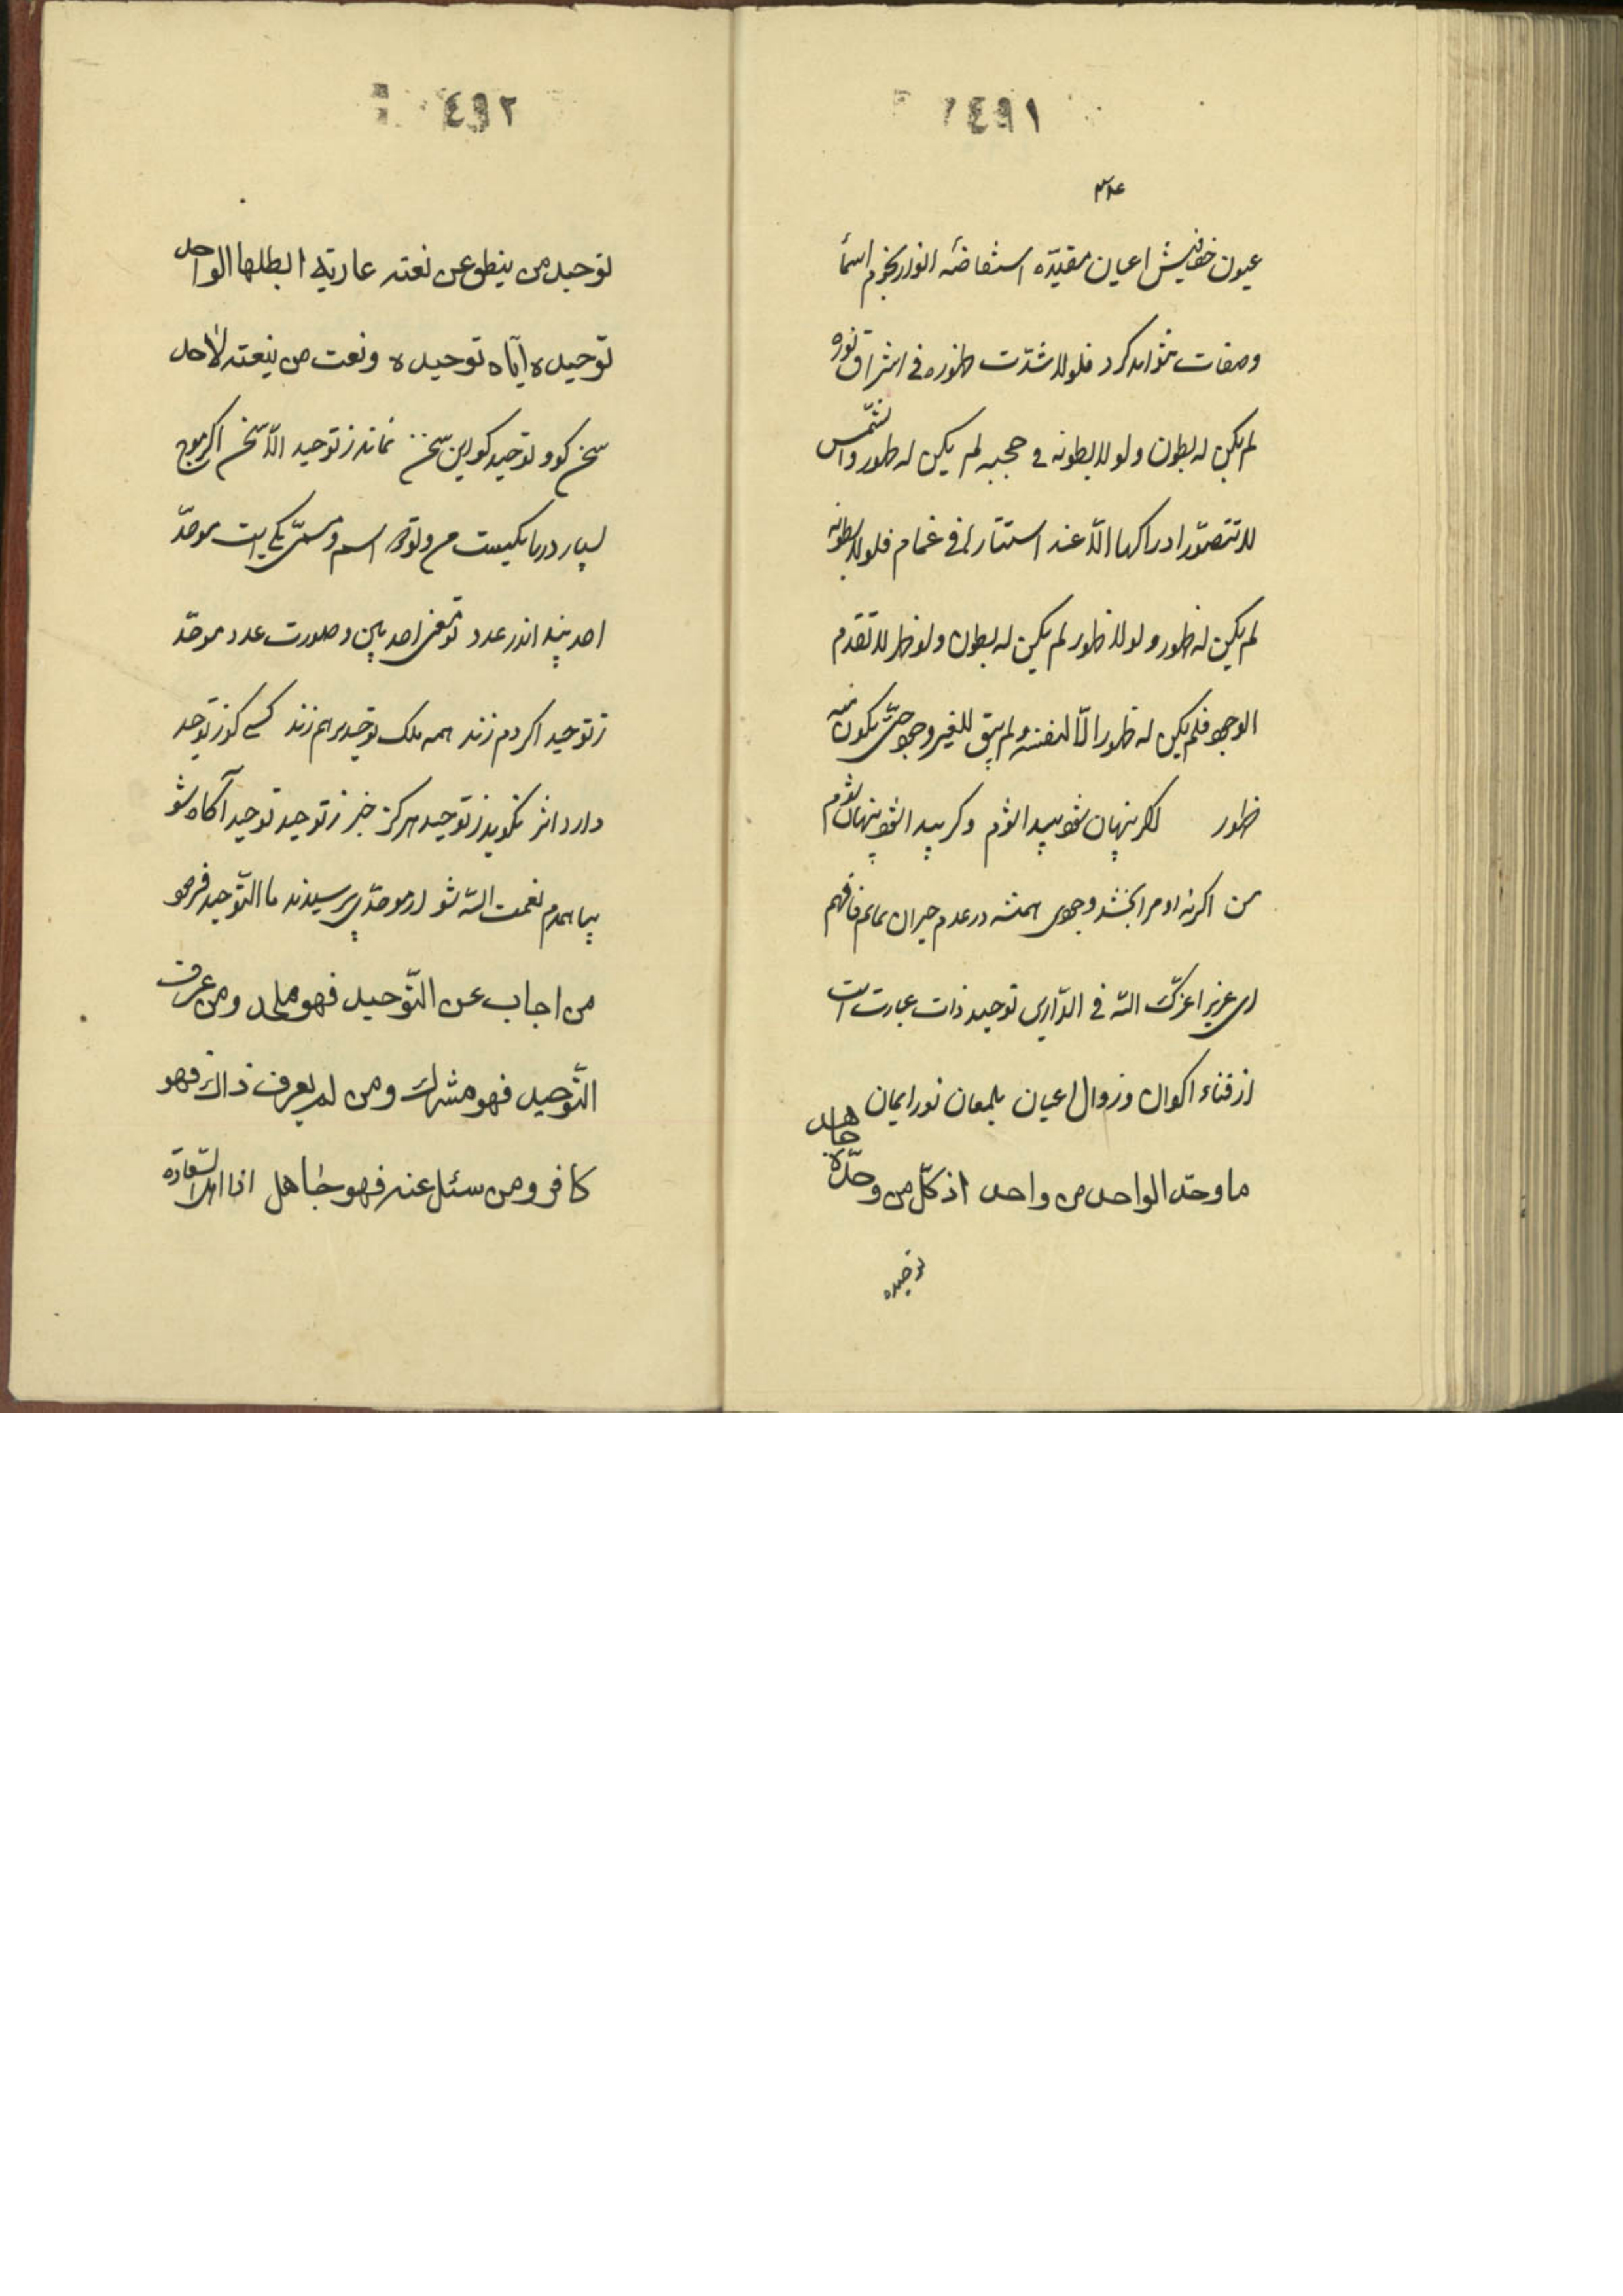 ٤٩١
عيون خفافيش اعيان مقيّده استفاضهٔ انوار نجوم اسما
وصفات نتواند كرد فلولا شدّت ظهوره فى اشراق نوره
لم يكن له بطون ولولا بطونه فى حجبه لم يكن له ظهور والشّمس
لا تتصوّر ادراكها الّا عند استتارها فى غمام فلولا بطونه
لم يكن له ظهور ولولا ظهور لم يكن له بطون ولو ظهر لا تقدم
الوجود فلم يكن له ظهور الّا لنفسه ولم يبق للغير وجود حتّى يكون منه
ظهور كر پنهان شود پيدا شوم وكر پيدا شود پنهان شوم
من اكر نه او مرا بخشد وجودى همنشه در عدم حيران بمانم فافهم
اى عزيز اعزّك اللّه فى الدّارين توحيد ذات عبارت است
از فناء اكوان وزوال اعيان بلمعان نور ايمان
ما وحّد الواحد من واحد اذ كلّ من وحّده جاهد
توحيده
٤٩٢
توحيد من ينطق عن نعته عارية ابطلها الواحد
توحيده ايّاه توحيده ونعت من ينعته لاحد
سخن كو و توحيد كو اين سخن نماند ز توحيد الّا سخن اكر موج
بسيار دريا يكيست من وتو اسم ومسمّى يكى است موحّد
احد بيند اندر عدد تو معنى احد بين وصورت عدد موحّد
ز توحيد اكر دم زند همه ملك توحيد برهم زند كسى كز توحيد
دارد اثر نكويد ز توحيد هركز خبر ز توحيد توحيد آكاه شو
بيا همدم نعمت اللّه شو از موحّدى پرسيدند ما التّوحيد فرمود
من اجاب عن التّوحيد فهو ملحد ومن عرف
التّوحيد فهو مشرك ومن لم يعرف ذاك فهو
كافر ومن سئل عنه فهو جاهل اذا اهل السّعادة